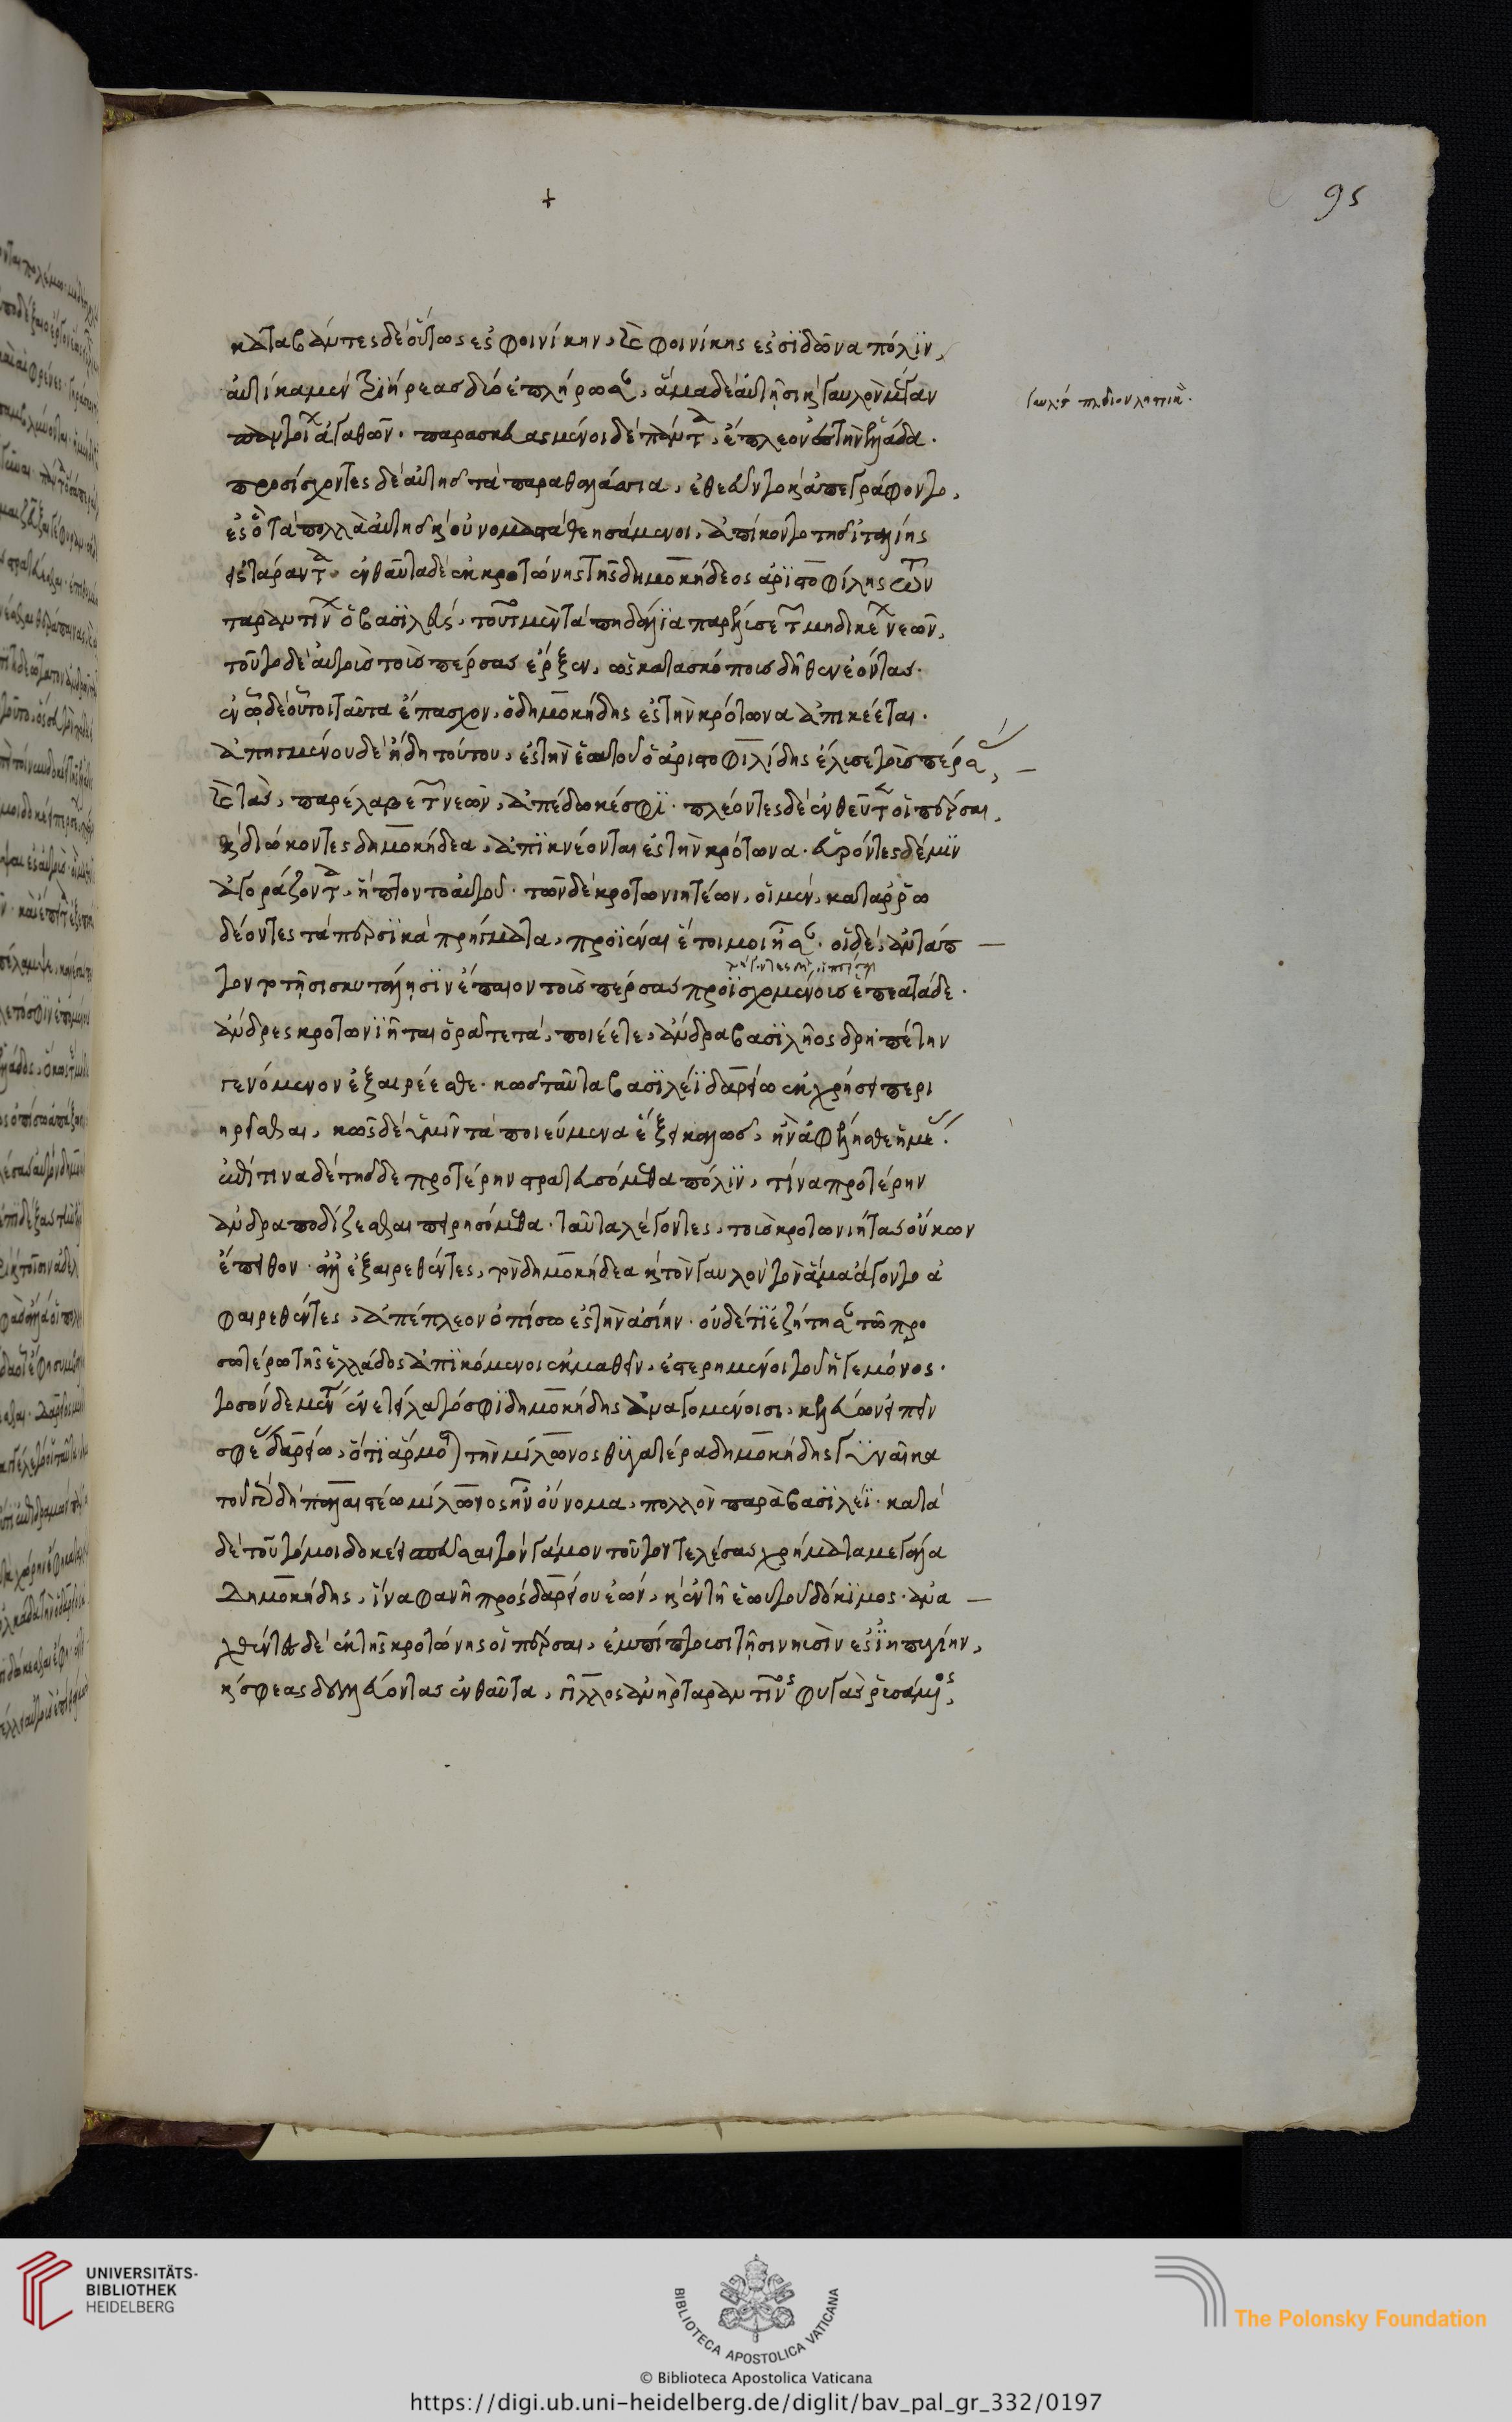 +
95
καταβάντες δὲ οὗτοι ἐς φοινίκην, καὶ φοινίκης ἐς σϊδῶνα πόλϊν,
αὐτίκα μὲν τριήρεας δύο ἐπλήρωσαν, ἅμα δὲ αὐτῆσι καὶ γαυλὸν μέγαν
παντοίων ἀγαθῶν. παρασκευασμένοι δὲ πάντα, ἔπλεον ἐς τὴν ἑλλάδα.
προσίσχοντες δὲ αὐτῆς τὰ παραθαλάσσια, ἐθεεῦντο καὶ ἀπεγράφοντο,
ἐς ὃ τὰ πολλὰ αὐτῆς καὶ οὐνομαστὰ θεησάμενοι, ἀπίκοντο τῆς ἰταλίης
ἐς τάραντα. ἐνθαῦτα δὲ ἐκ κρηστώνης τῆς δημοκήδεος ἀριστοφίλης τῶν
ταραντίνων ὁ βασϊλεὺς, τοῦτο μὲν τὰ πηδάλϊα παρέλυσε τῶν μηδικέων νεῶν,
τοῦτο δὲ αὐτοὺς τοὺς πέρσας εἶρξεν, ὡς κατασκόπους δῆθεν ἐόντας.
ἐν ᾧ δὲ οὗτοι ταῦτα ἔπασχον, ὁ δημοκήδης ἐς τὴν κρότωνα ἀπικέεται.
ἀπιγμένου δὲ ἤδη τούτου, ἐς τὴν ἑωυτοῦ ὁ ἀριστοφιλίδης ἔλυσε τοὺς πέρσας,
καὶ τὰ, παρέλαβε τῶν νεῶν, ἀπέδωκέ σφϊ. πλέοντες δὲ ἐνθεῦτεν οἱ πέρσαι,
καὶ διώκοντες δημοκήδεα, ἀπϊκνέονται ἐς τὴν κρότωνα. εὑρόντες δέ μϊν
ἀγοράζοντα, ἥπτοντο αὐτοῦ. τῶν δὲ κροτωνιητέων, οἱ μὲν, καταρρωδέοντες
τὰ περσϊκὰ πρήγματα, προϊέναι ἕτοιμοι ἦσαν. οἱ δὲ, ἀντάπτοντό
τε καὶ τῆσι σκυτάλησϊν ἔπαιον τοὺς πέρσας προϊσχομένους ἔπεα τάδε.
ἄνδρες κροτωνϊῆται ὁρᾶτε τὰ, ποιέετε, ἄνδρα βασϊλῆος δρηπέτην
γενόμενον ἐξαιρέεσθε. κῶς ταῦτα βασϊλέϊ δαρείω ἐκχρήσει περιυβρίσθαι,
κῶς δὲ ὑμῖν τὰ ποιεύμενα ἕξει καλῶς, ἢν ἀφέλησθε ἡμέας.
ἐπὶ τίνα δὲ τῆσδε προτέρην στρατευσόμεθα πόλϊν, τίνα προτέρην
ἀνδραποδίζεσθαι πειρησόμεθα. ταῦτα λέγοντες, τοὺς κροτωνιήτας οὔκων
ἔπειθον. ἀλλ' ἐξαιρεθέντες, τὸν δημοκήδεα καὶ τὸν γαυλὸν τὸν ἅμα ἄγοντο ἀπαιρεθέντες,
ἀπέπλεον ὀπίσω ἐς τὴν ἀσίην. οὐδέ τϊ ἐζήτησαν τῶ προσωτέρω
τῆς ἑλλάδος ἀπϊκόμενοι ἐκμαθεῖν, ἐστερημένοι τοῦ ἡγεμόνος.
τοσόνδε μέντοι ἐνετείλατό σφϊ δημοκήδης ἀναγομένοισι, κελεύων εἰπεῖν
σφέας δαρείω, ὅτϊ ἅρμοσται τὴν μίλωνος θϋγατέρα δημοκήδης γϋναῖκα
τοῦ γὰρ δὴ παλαιστέω μίλωνος ἦν οὔνομα, πολλὸν παρὰ βασϊλέϊ. κατὰ
δὲ τοῦτό μοι δοκέει σπεῦσαι τὸν γάμον τοῦτον τελέσας χρήματα μεγάλα
Δημοκήδης, ἵνα φανῆ πρὸς δαρείου ἐὼν, καὶ ἐν τῆ ἑωυτοῦ δόκϊμος. ἀναχθέντες
δὲ ἐκ τῆς κροτώνης οἱ πέρσαι, ἐμπίπτουσι τῆσι νηυσὶν ἐς ἰηπυγίην,
καὶ σφέας δουλεύοντας ἐνθαῦτα, γίλλος ἀνὴρ ταραντῖνος φυγὰς ῥυσάμενος,
UNIVERSITÄTS-
BIBLIOTHEK
HEIDELBERG
BIBLIOTECA APOSTOLICA VATICANA
The Polonsky Foundation
© Biblioteca Apostolica Vaticana
https://digi.ub.uni-heidelberg.de/diglit/bav_pal_gr_332/0197